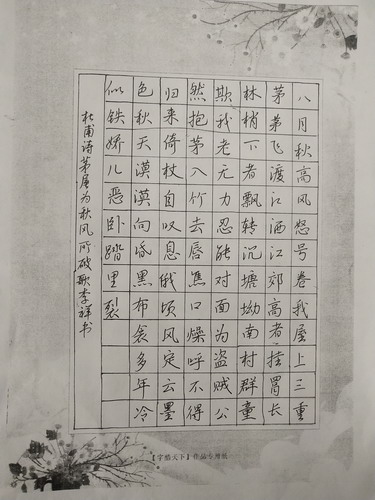 八月秋高风怒号卷我屋上三重
茅茅飞渡江洒江郊高者挂罥长
林梢下者飘转沉塘坳南村群童
欺我老无力忍能对面为盗贼公
然抱茅入竹去唇焦口燥呼不得
归来倚杖自叹息俄顷风定云墨
色秋天漠漠向昏黑布衾多年冷
似铁娇儿恶卧踏里裂
杜甫诗茅屋为秋风所破歌李祥书
【字酷天下】作品专用纸